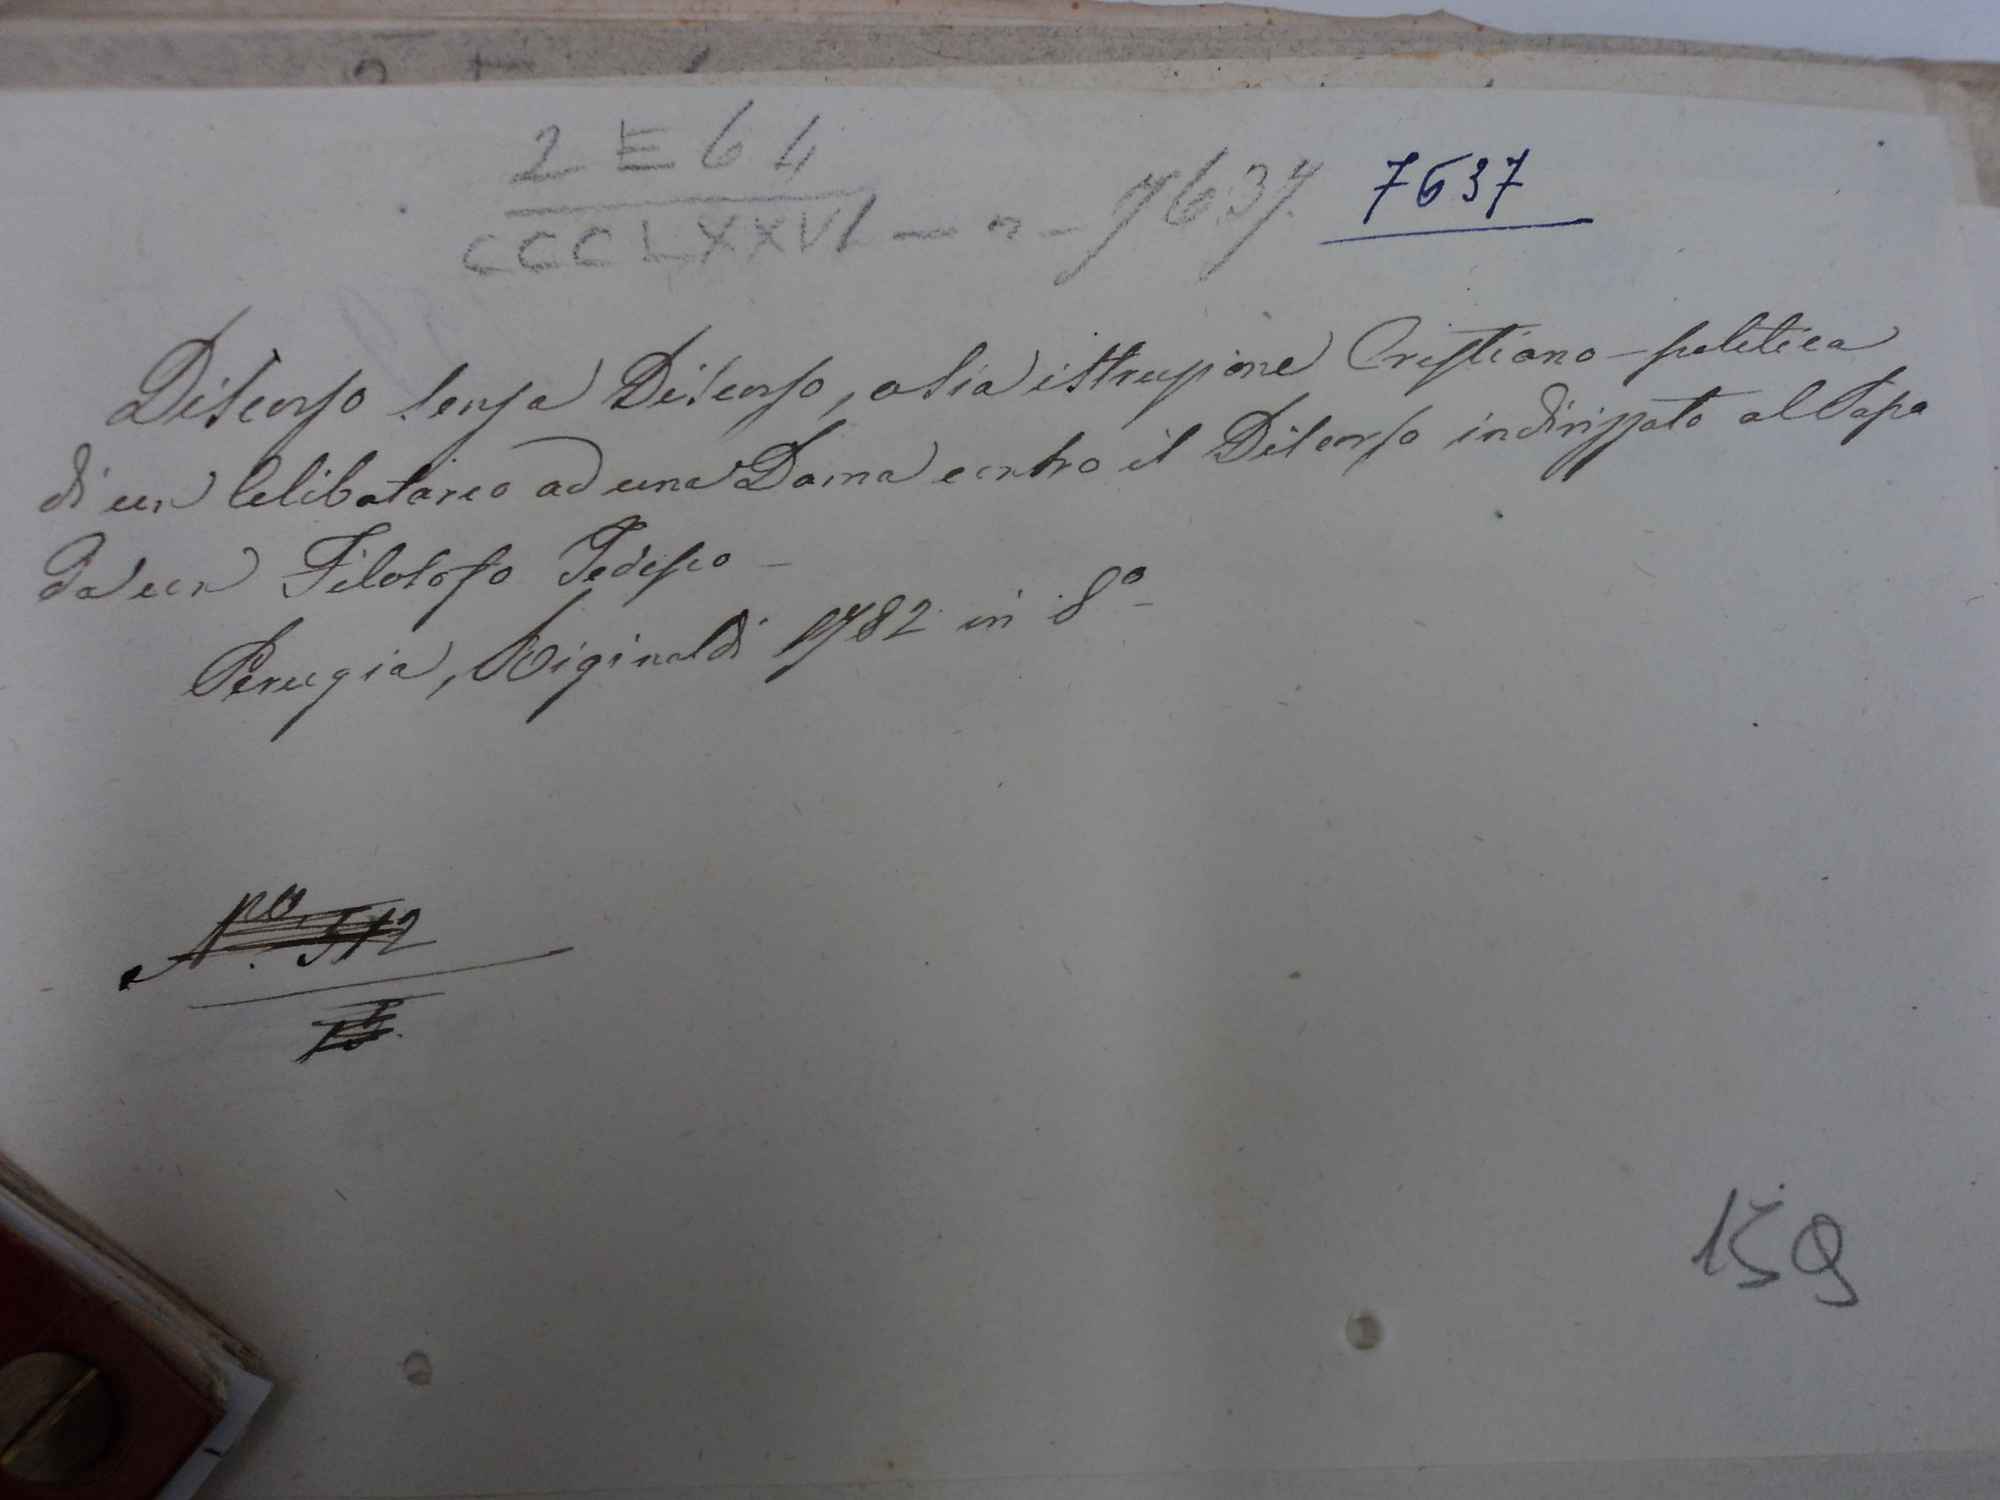 2 E 64
CCCLXXVI — n — 7637. 7637
Discorso senza Discorso, o sia istruzione Cristiano-politica
di un Celibatario ad una Dama contro il Discorso indirizzato al Papa
da un Filosofo Tedesco —
Perugia, Riginaldi 1782 in 8º
512
15